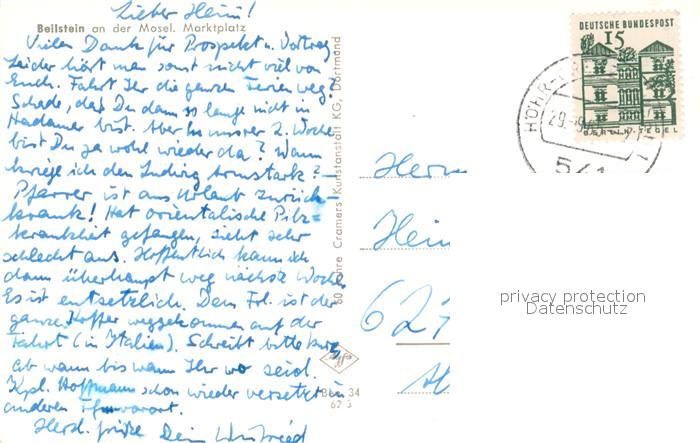 Lieber Heini!
Beilstein an der Mosel. Marktplatz
Vielen Dank für Prospekt u. Vortrag
Leider hört man sonst nicht viel von
Euch. Fahrt Ihr die ganzen Ferien weg?
Schade, daß Du dann so lange nicht in
Hadamar bist. Aber in unserer 2. Woche
bist Du ja wohl wieder da? Wann
kriege ich den Ludwig Armstark?
Pfarrer ist aus Urlaub zurück-
krank! Hat orientalische Pilz=
krankheit gefangen, sieht sehr
schlecht aus. Hoffentlich kann ich
dann überhaupt weg nächste Woche.
Es ist entsetzlich. Dem Frl. ist der
ganze Koffer weggekommen auf der
Fahrt (in Italien). Schreibt bitte kurz
ab wann bis wann Ihr wo seid.
Kpl. Hoffmann schon wieder versetzt in
anderen
Herzl. Grüße Dein Winfried
60 Jahre Cramers Kunstanstalt KG, Dortmund
Bei 34
62 3
DEUTSCHE BUNDESPOST
15
BERLIN-TEGEL
HÖHR-
29.
541
Herrn
Hein
627
privacy protection
Datenschutz